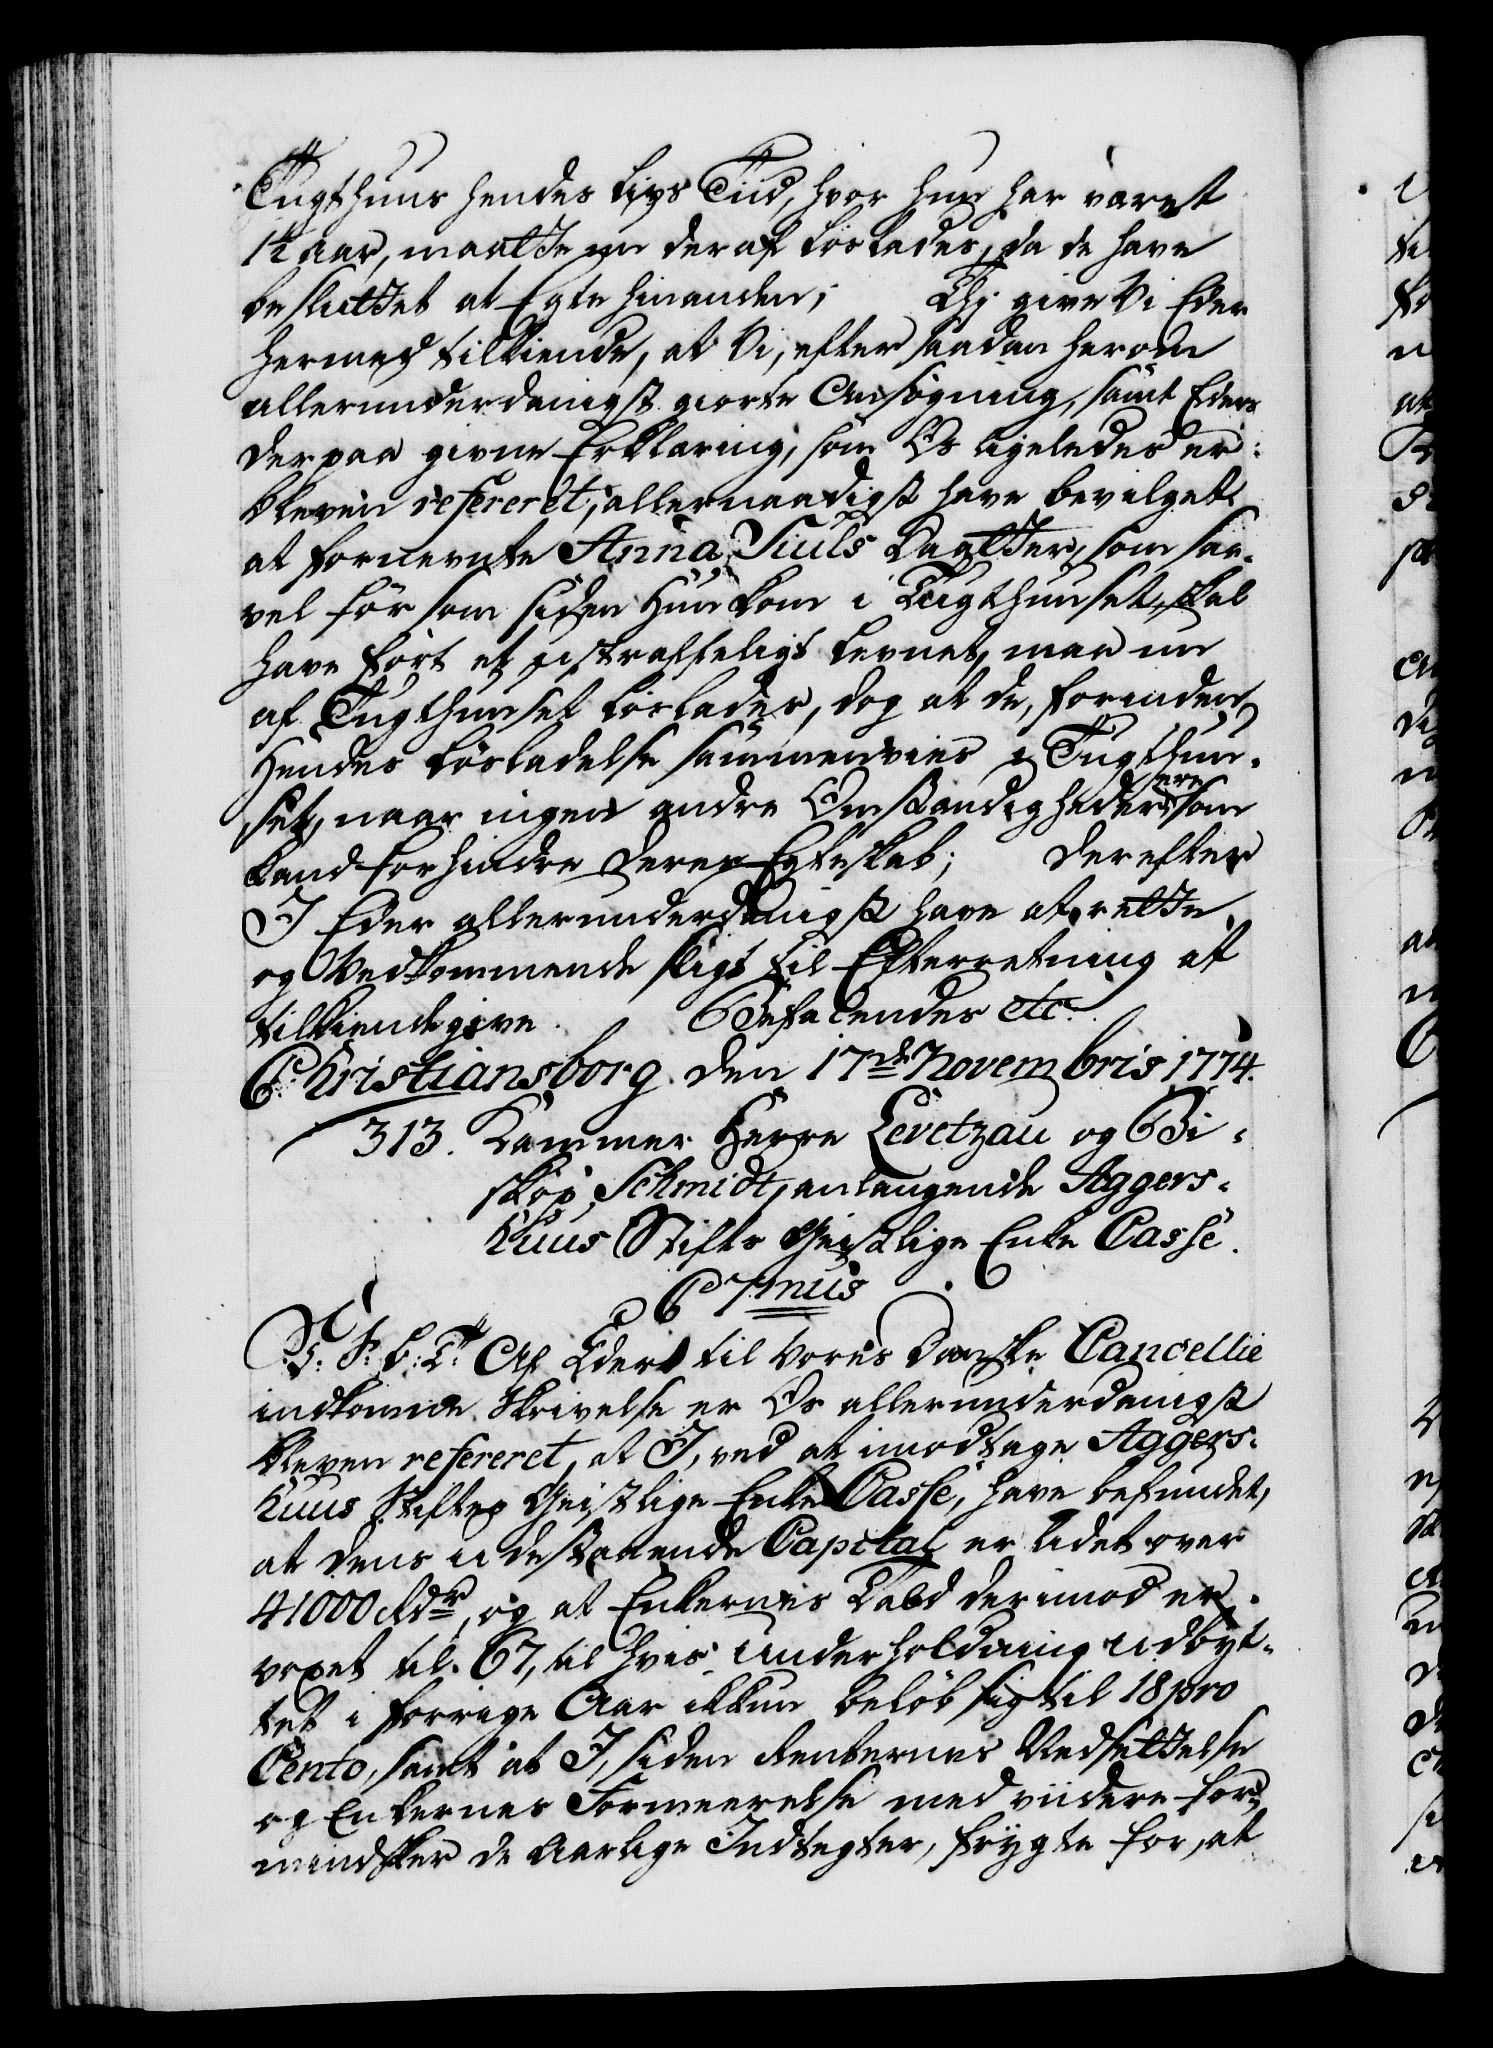 Tugthuus hendes Livs Tiid, hvor hun har været
12 aar, maatte nu deraf løslades, da de have
besluttet at Egte hinanden; Thi give Vi Eder
hermed tilkiende, at Vi, efter saadan herom
allerunderdanigst giorte Ansøgning, samt Eders
derpaa givne Erklæring, som Os ligeledes er
bleven refereret, allernaadigst have bevilget
at fornevnte Anna Juuls Daatter, som saa-
vel før som siden Hun kom i Tugthuuset, skal
have ført et ustraffeligt Levnet, maa nu
af Tugthuuset løslades, dog at de, forinden
Hendes Løsladelse sammenvies i Tugthuu-
set, naar ingen andre Omstændigheder ere som
kand forhindre deres Egteskab; Derefter
I Eder allerunderdanigst have at rette,
og Vedkommende sligt til Efterretning at
tilkiendegive. Befalendes etc.
Christiansborg den 17de Novembris 1774.
313. Kammer Herre Levetzau og Bi-
skop Schmidt, anlangende Aggers-
huus Stifts Geistlige Enke Casse.
C 7mus
C: F: B: T: Af Eders til Vores Danske Cancellie
indkomne Skrivelse er Os allerunderdanigst
bleven refereret, at I, ved at imodtage Aggers-
huus Stifts Geistlige Enke Casse, have befundet,
at dens udestaaende Capital er lidet over
41000 Rdr, og at Enkernes Tald derimod er
voxet til 67, til hvis Underholdning udbyt-
tet i forrige Aar ikkun beløb sig til 18 pro
Cento, samt at I, siden Renternes Nedsettelse
og Enkernes Formeerelse med viidere for-
mindsker de Aarlige Indtegter, frygte for, at